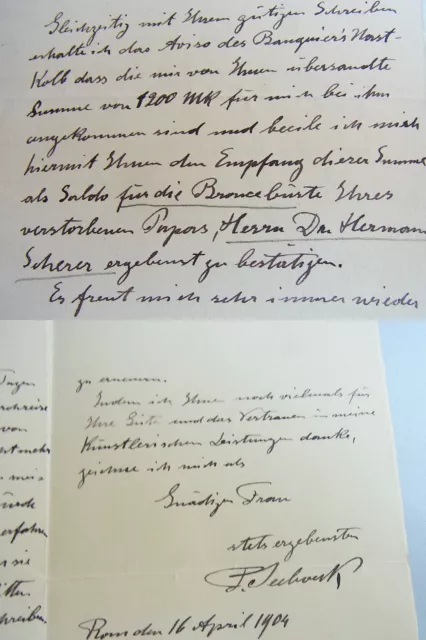 Gleichzeitig mit Ihrem gütigen Schreiben
erhalte ich das Aviso des Banquier's Nast-
Kolb dass die mir von Ihnen übersandte
Summe von 1200 MK für mich bei ihm
angekommen sind und beeile ich mich
hiermit Ihnen den Empfang dieser Summe
als Saldo für die Broncebüste Ihres
verstorbenen Papas, Herrn Dr. Hermann
Scherer ergebenst zu bestätigen.
Es freut mich sehr immer wieder
zu erneuern.
Indem ich Ihnen noch vielmals für
Ihre Güte und das Vertrauen in meine
Künstlerischen Leistungen danke,
zeichne ich mich als
Gnädigen Frau
stets ergebensten
Seeboeck
Rom den 16 April 1904
Tagen
mehr
erfahren
sie
schreiben